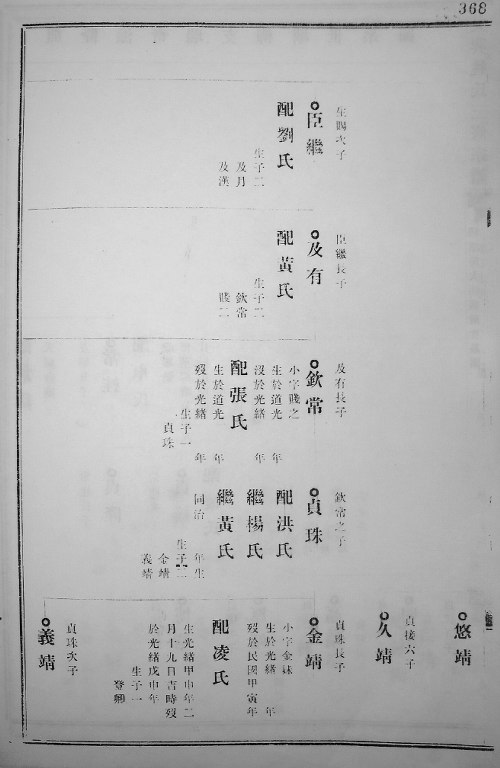 368
生賜次子
臣繼
配劉氏
生子二
及月
及漢
臣繼長子
及有
配黃氏
生子二
欽常
賤二
及有長子
欽常
小字賤之
生於道光 年
沒於光緒 年
配張氏
生於道光 年
歿於光緒 年
生子一
貞珠
欽常之子
貞珠
配洪氏
繼楊氏
繼黃氏
同治 年生
生子二
金靖
義靖
悠靖
貞接六子
久靖
貞珠長子
金靖
小字金妹
生於光緒 年
歿於民國甲寅年
配凌氏
生光緒甲申年二
月十九日吉時歿
於光緒戊申年
生子一
登鄉
貞珠次子
義靖